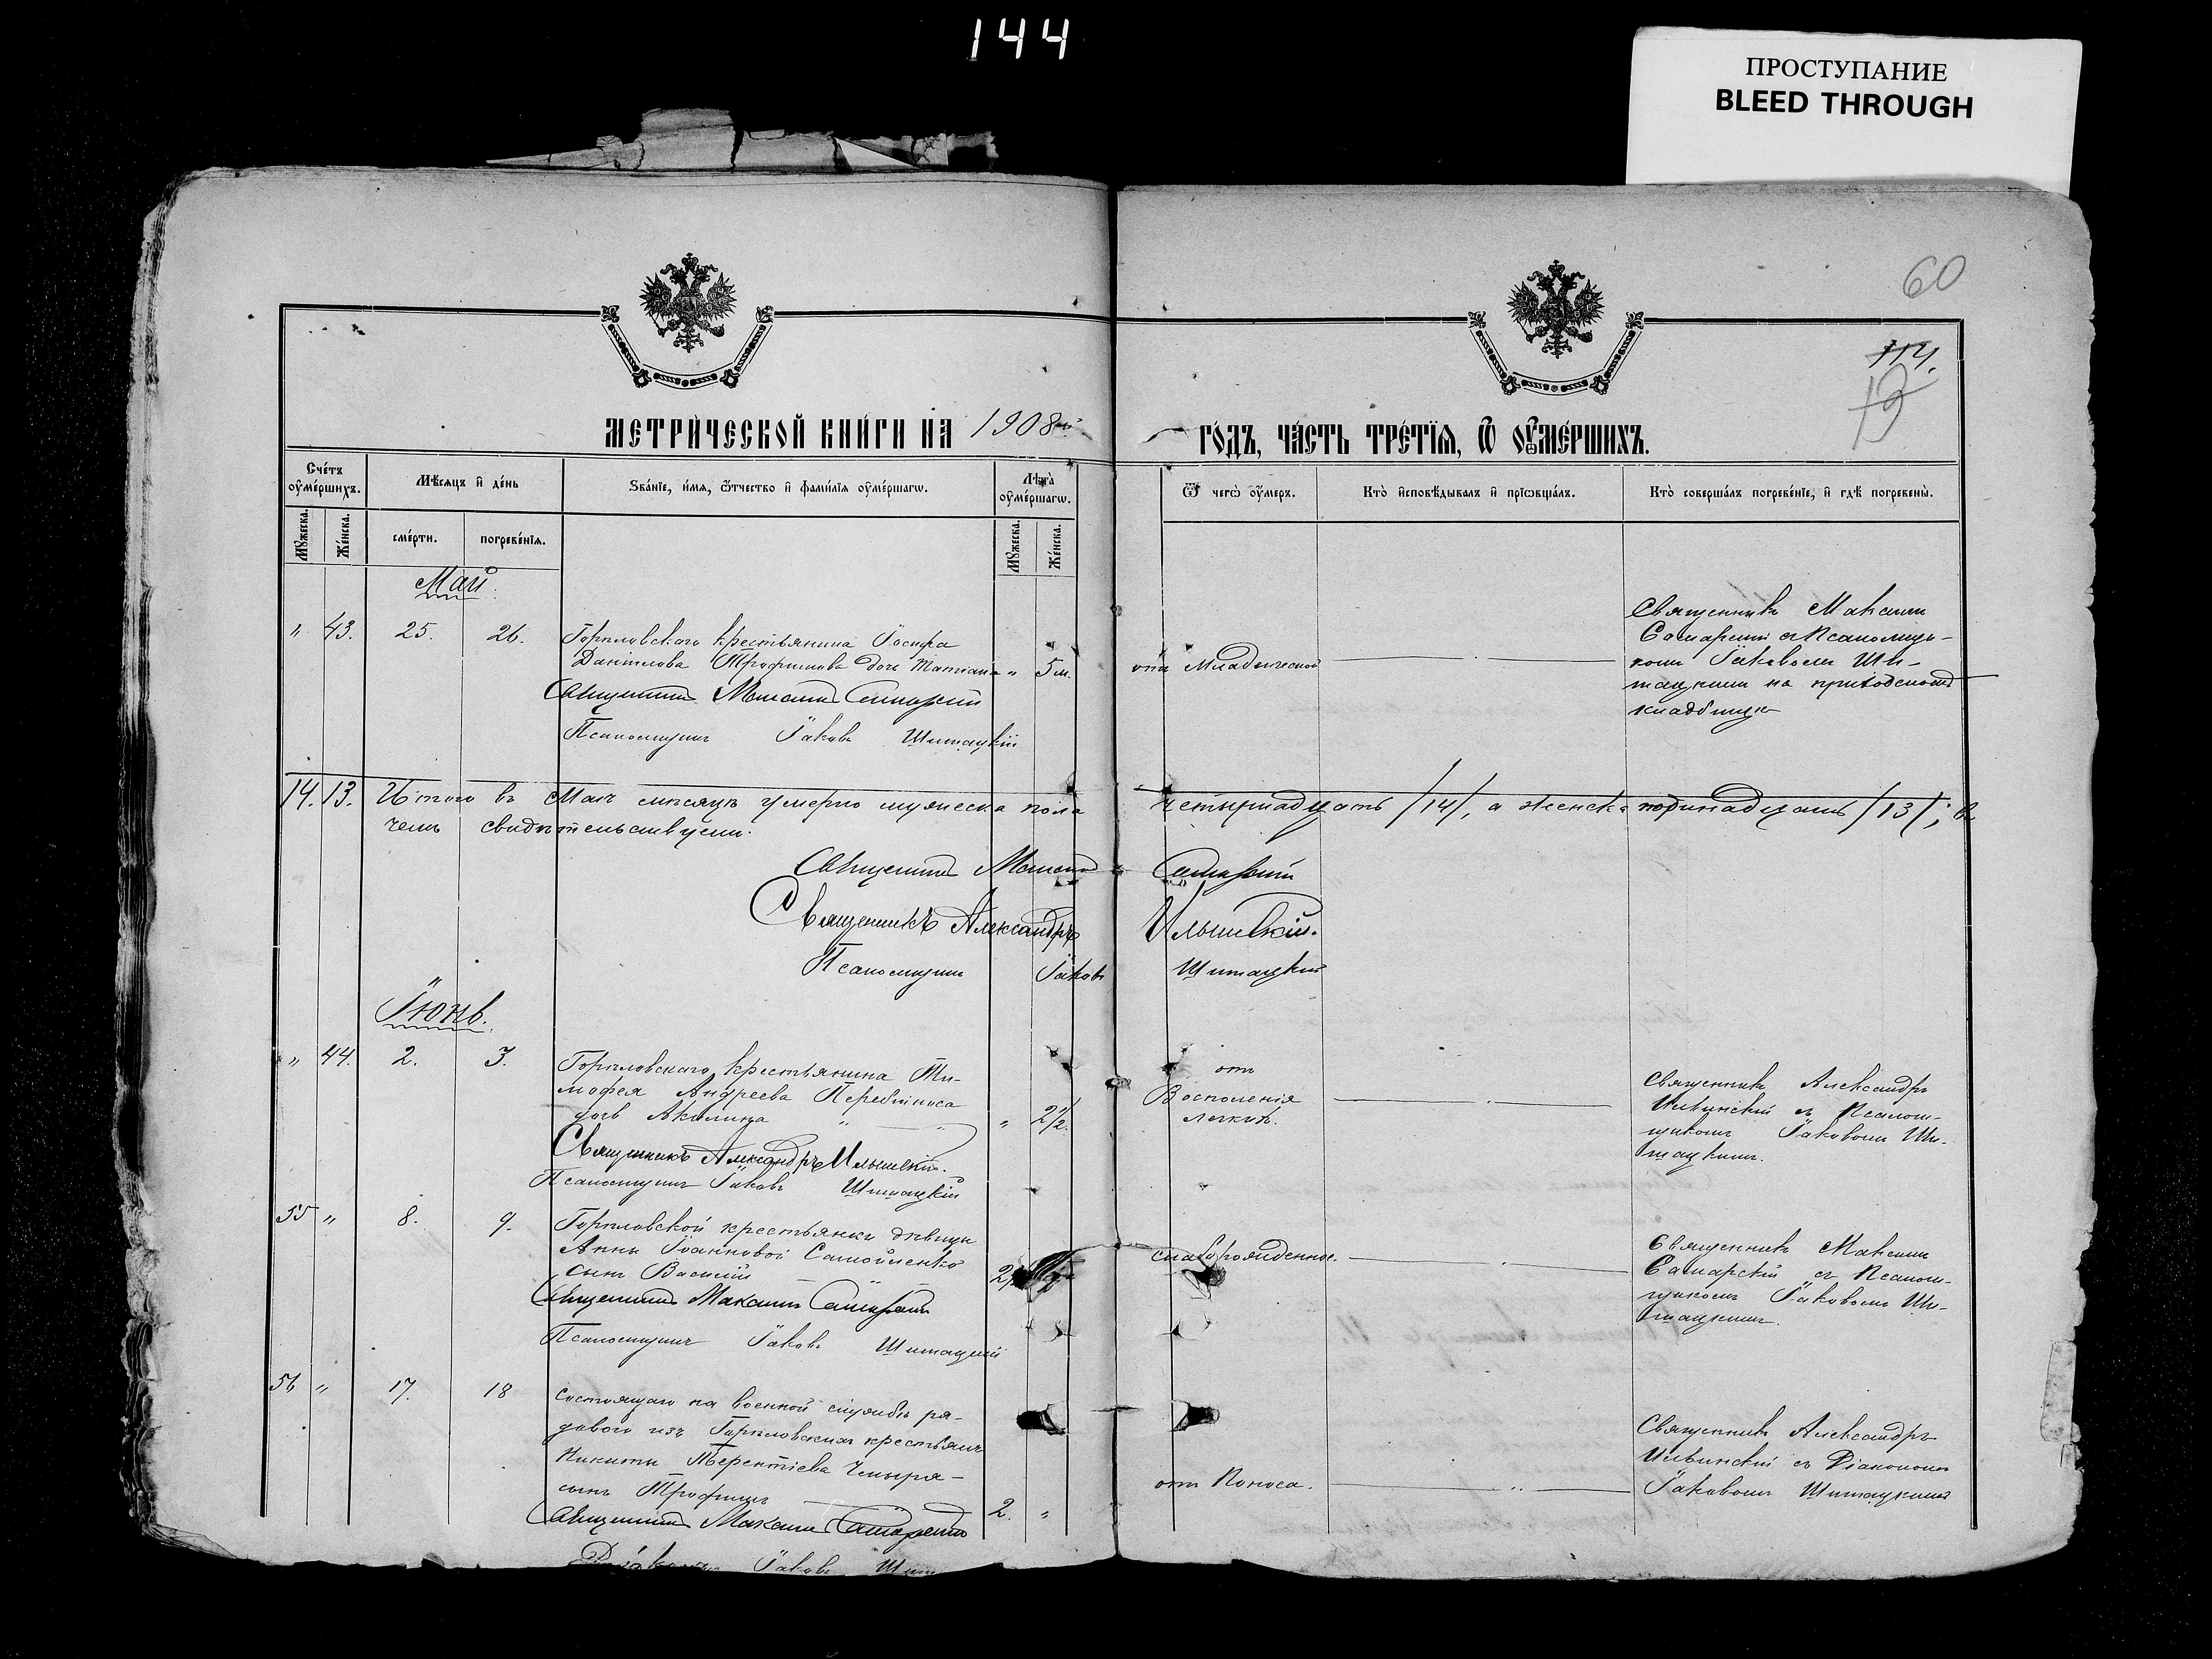 144
ПРОСТУПАНИЕ
BLEED THROUGH
60
114.
19
МЕТРИЧЕСКОЙ КНИГИ НА 1908ый ГОДЪ, ЧАСТЬ ТРЕТІЯ, Ѿ ОУМЕРШИХЪ.
Счетъ оумершихъ.
Мѣсяцъ и день
Званіе, имя, ѿтчество и фамилія оумершагѡ.
Лѣта оумершагѡ.
Ѿ чегѡ оумеръ.
Кто исповѣдывалъ и пріѡбщалъ.
Кто совершалъ погребеніе, и гдѣ погребены.
Мужеска.
Женска.
смерти.
погребенія.
Мужеска.
Женска.
Май.
" 43. 25. 26.
Горпловского крестьянина Іосифа
Даніилова Трофимова дочь Татіана " 5 м.
Священникъ Максимъ Самарскій
Псаломщикъ Іаковъ Шитацкій
отъ Младенческой
Священникъ Максим
Самарскій съ Псаломщи-
комъ Іаковомъ Ши-
тацкимъ на приходскомъ
кладбищѣ
14. 13. Итого въ Маѣ мѣсяцѣ умерло мужеска пола четырнадцать /14/, а женска тринадцать /13/; въ
чемъ свидѣтельствуемъ.
Священникъ Максимъ Самарскій
Священникъ Александръ Ильинскій.
Псаломщикъ Іаковъ Шитацкій
Іюнь.
" 44. 2. 3.
Горпловскаго крестьянина Ти-
мофея Андреева Перебійноса
дочь Акилина " 2 1/2.
Священникъ Александръ Ильинскій.
Псаломщикъ Іаковъ Шитацкій
отъ
Воспаленія
легкихъ.
Священникъ Александръ
Ильинскій съ Псалом-
щикомъ Іаковомъ Ши-
тацкимъ.
55 " 8. 9.
Горпловской крестьянки дѣвицы
Анны Іоанновой Самойленко
сынъ Василій
Священникъ Максимъ Самарскій
Псаломщикъ Іаковъ Шитацкій
слаборожденнос.
Священникъ Максим
Самарскій съ Псалом-
щикомъ Іаковомъ Ши-
тацкимъ.
56 " 17. 18
Состоящаго на военной службѣ ря-
дового изъ Горпловскихъ крестьянъ
Никиты Терентіева
сынъ Трофимъ 2. "
Священникъ Максимъ Самарскій
Діаконъ Іаковъ
отъ Поноса.
Священникъ Александръ
Ильинскій съ Діакономъ
Іаковомъ Шитацкимъ